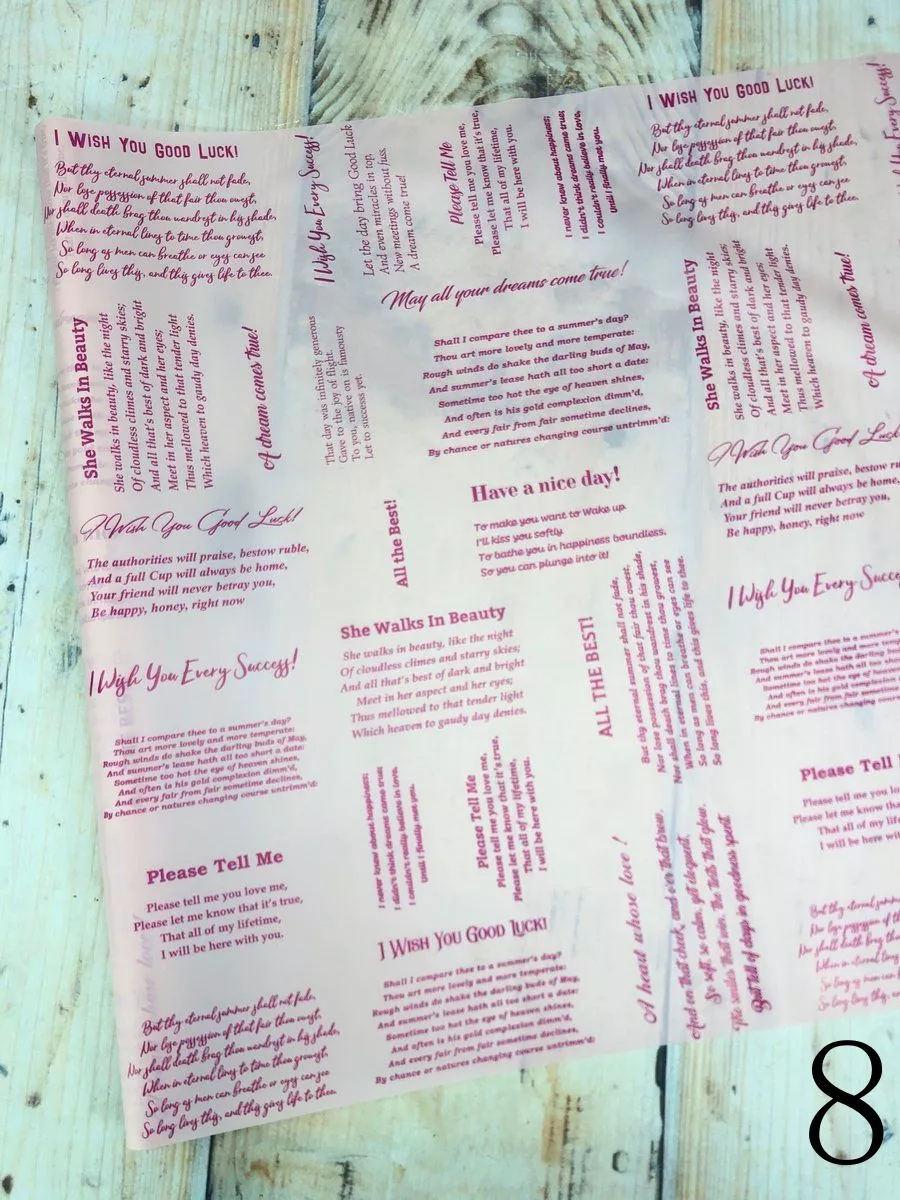 I WISH YOU GOOD LUCK!
But thy eternal summer shall not fade,
Nor lose possession of that fair thou owest,
Nor shall death brag thou wandrest in his shade,
When in eternal lines to time thou growest,
So long as men can breathe or eyes can see
So long lives this, and this gives life to thee.
I Wish You Every Success!
Let the day bring Good Luck
And even miracles in top,
New meetings without luss.
A dream come true!
Please Tell Me
Please tell me you love me,
Please let me know that it's true,
That all of my lifetime,
I will be here with you.
I never knew about happiness;
I didn't think dreams came true;
I couldn't really believe in love,
Until I finally met you.
I WISH YOU GOOD LUCK!
But thy eternal summer shall not fade,
Nor lose possession of that fair thou owest,
Nor shall death brag thou wandrest in his shade,
When in eternal lines to time thou growest,
So long as men can breathe or eyes can see
So long lives this, and this gives life to thee.
Every Success!
May all your dreams come true!
She Walks In Beauty
She walks in beauty, like the night
Of cloudless climes and starry skies;
And all that's best of dark and bright
Meet in her aspect and her eyes;
Thus mellowed to that tender light
Which heaven to gaudy day denies.
A dream comes true!
That day was infinitely generous
Gave to the joy of flight.
To you, native on is famousty
Let to successs yet.
Shall I compare thee to a summer's day?
Thou art more lovely and more temperate:
Rough winds do shake the darling buds of May,
And summer's lease hath all too short a date:
Sometime too hot the eye of heaven shines,
And often is his gold complexion dimm'd,
And every fair from fair sometime declines,
By chance or natures changing course untrimm'd:
She Walks In Beauty
She walks in beauty, like the night
Of cloudless climes and starry skies;
And all that's best of dark and bright
Meet in her aspect and her eyes;
Thus mellowed to that tender light
Which heaven to gaudy day denies.
A dream comes true!
I Wish You Good Luck!
The authorities will praise, bestow ruble,
And a full Cup will always be home,
Your friend will never betray you,
Be happy, honey, right now
All the Best!
Have a nice day!
To make you want to Wake up
I'll kiss you softly.
To bathe you in happiness boundless,
So you can plunge into it!
I Wish You Good Luck
The authorities will praise, bestow ru
And a full Cup will always be home,
Your friend will never betray you,
Be happy, honey, right now
I Wish You Every Success!
She Walks In Beauty
She walks in beauty, like the night
Of cloudless climes and starry skies;
And all that's best of dark and bright
Meet in her aspect and her eyes;
Thus mellowed to that tender light
Which heaven to gaudy day denies.
ALL THE BEST!
But thy eternal summer shall not fade,
Nor lose possession of that fair thou owest,
Nor shall death brag thou wandrest in his shade,
When in eternal lines to time thou growest,
So long as men can breathe or eyes can see
So long lives this, and this gives life to thee.
I Wish You Every Succe
Shall I compare thee to a summer's
Thou art more lovely and more tempera
Rough winds do shake the darling buds o
And summer's lease hath all too short a
Sometime too hot the eye of heaven
And often is his gold complexion
And every fair from fair sometime
By chance or natures changing course
Shall I compare thee to a summer's day?
Thou art more lovely and more temperate:
Rough winds do shake the darling buds of May,
And summer's lease hath all too short a date:
Sometime too hot the eye of heaven shines,
And often is his gold complexion dimm'd,
And every fair from fair sometime declines,
By chance or natures changing course untrimm'd:
Please Tell Me
Please tell me you love me,
Please let me know that it's true,
That all of my lifetime,
I will be here with you.
I never knew about happiness;
I didn't think dreams came true;
I couldn't really believe in love,
Until I finally met you.
Please Tell Me
Please tell me you love me,
Please let me know that it's true,
That all of my lifetime,
I will be here with you.
A head whose love !
And on that cheek, and o'er that brow,
So soft, so calm, yet eloquent,
The smiles that win, the tints that glow,
But tell of days in goodness spent
Please Tell
Please tell me you lo
Please let me know that
That all of my life
I will be here wit
I WISH YOU GOOD LUCK!
Shall I compare thee to a summer's day?
Thou art more lovely and more temperate:
Rough winds do shake the darling buds of May,
And summer's lease hath all too short a date:
Sometime too hot the eye of heaven shines,
And often is his gold complexion dimm'd,
And every fair from fair sometime declines,
By chance or natures changing course untrimm'd:
But thy eternal summer shall not fade,
Nor lose possession of that fair thou owest,
Nor shall death brag thou wandrest in his shade,
When in eternal lines to time thou growest,
So long as men can breathe or eyes can see
So long lives this, and this gives life to thee.
But thy eternal summ
Nor lose possession of th
Nor shall death brag thou
When in eternal lines
So long as men can b
So long lives this, an
8